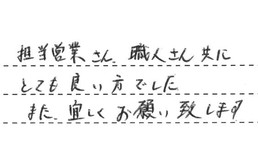 担当営業さん、職人さん共に
とても良い方でした
また、宜しくお願い致します